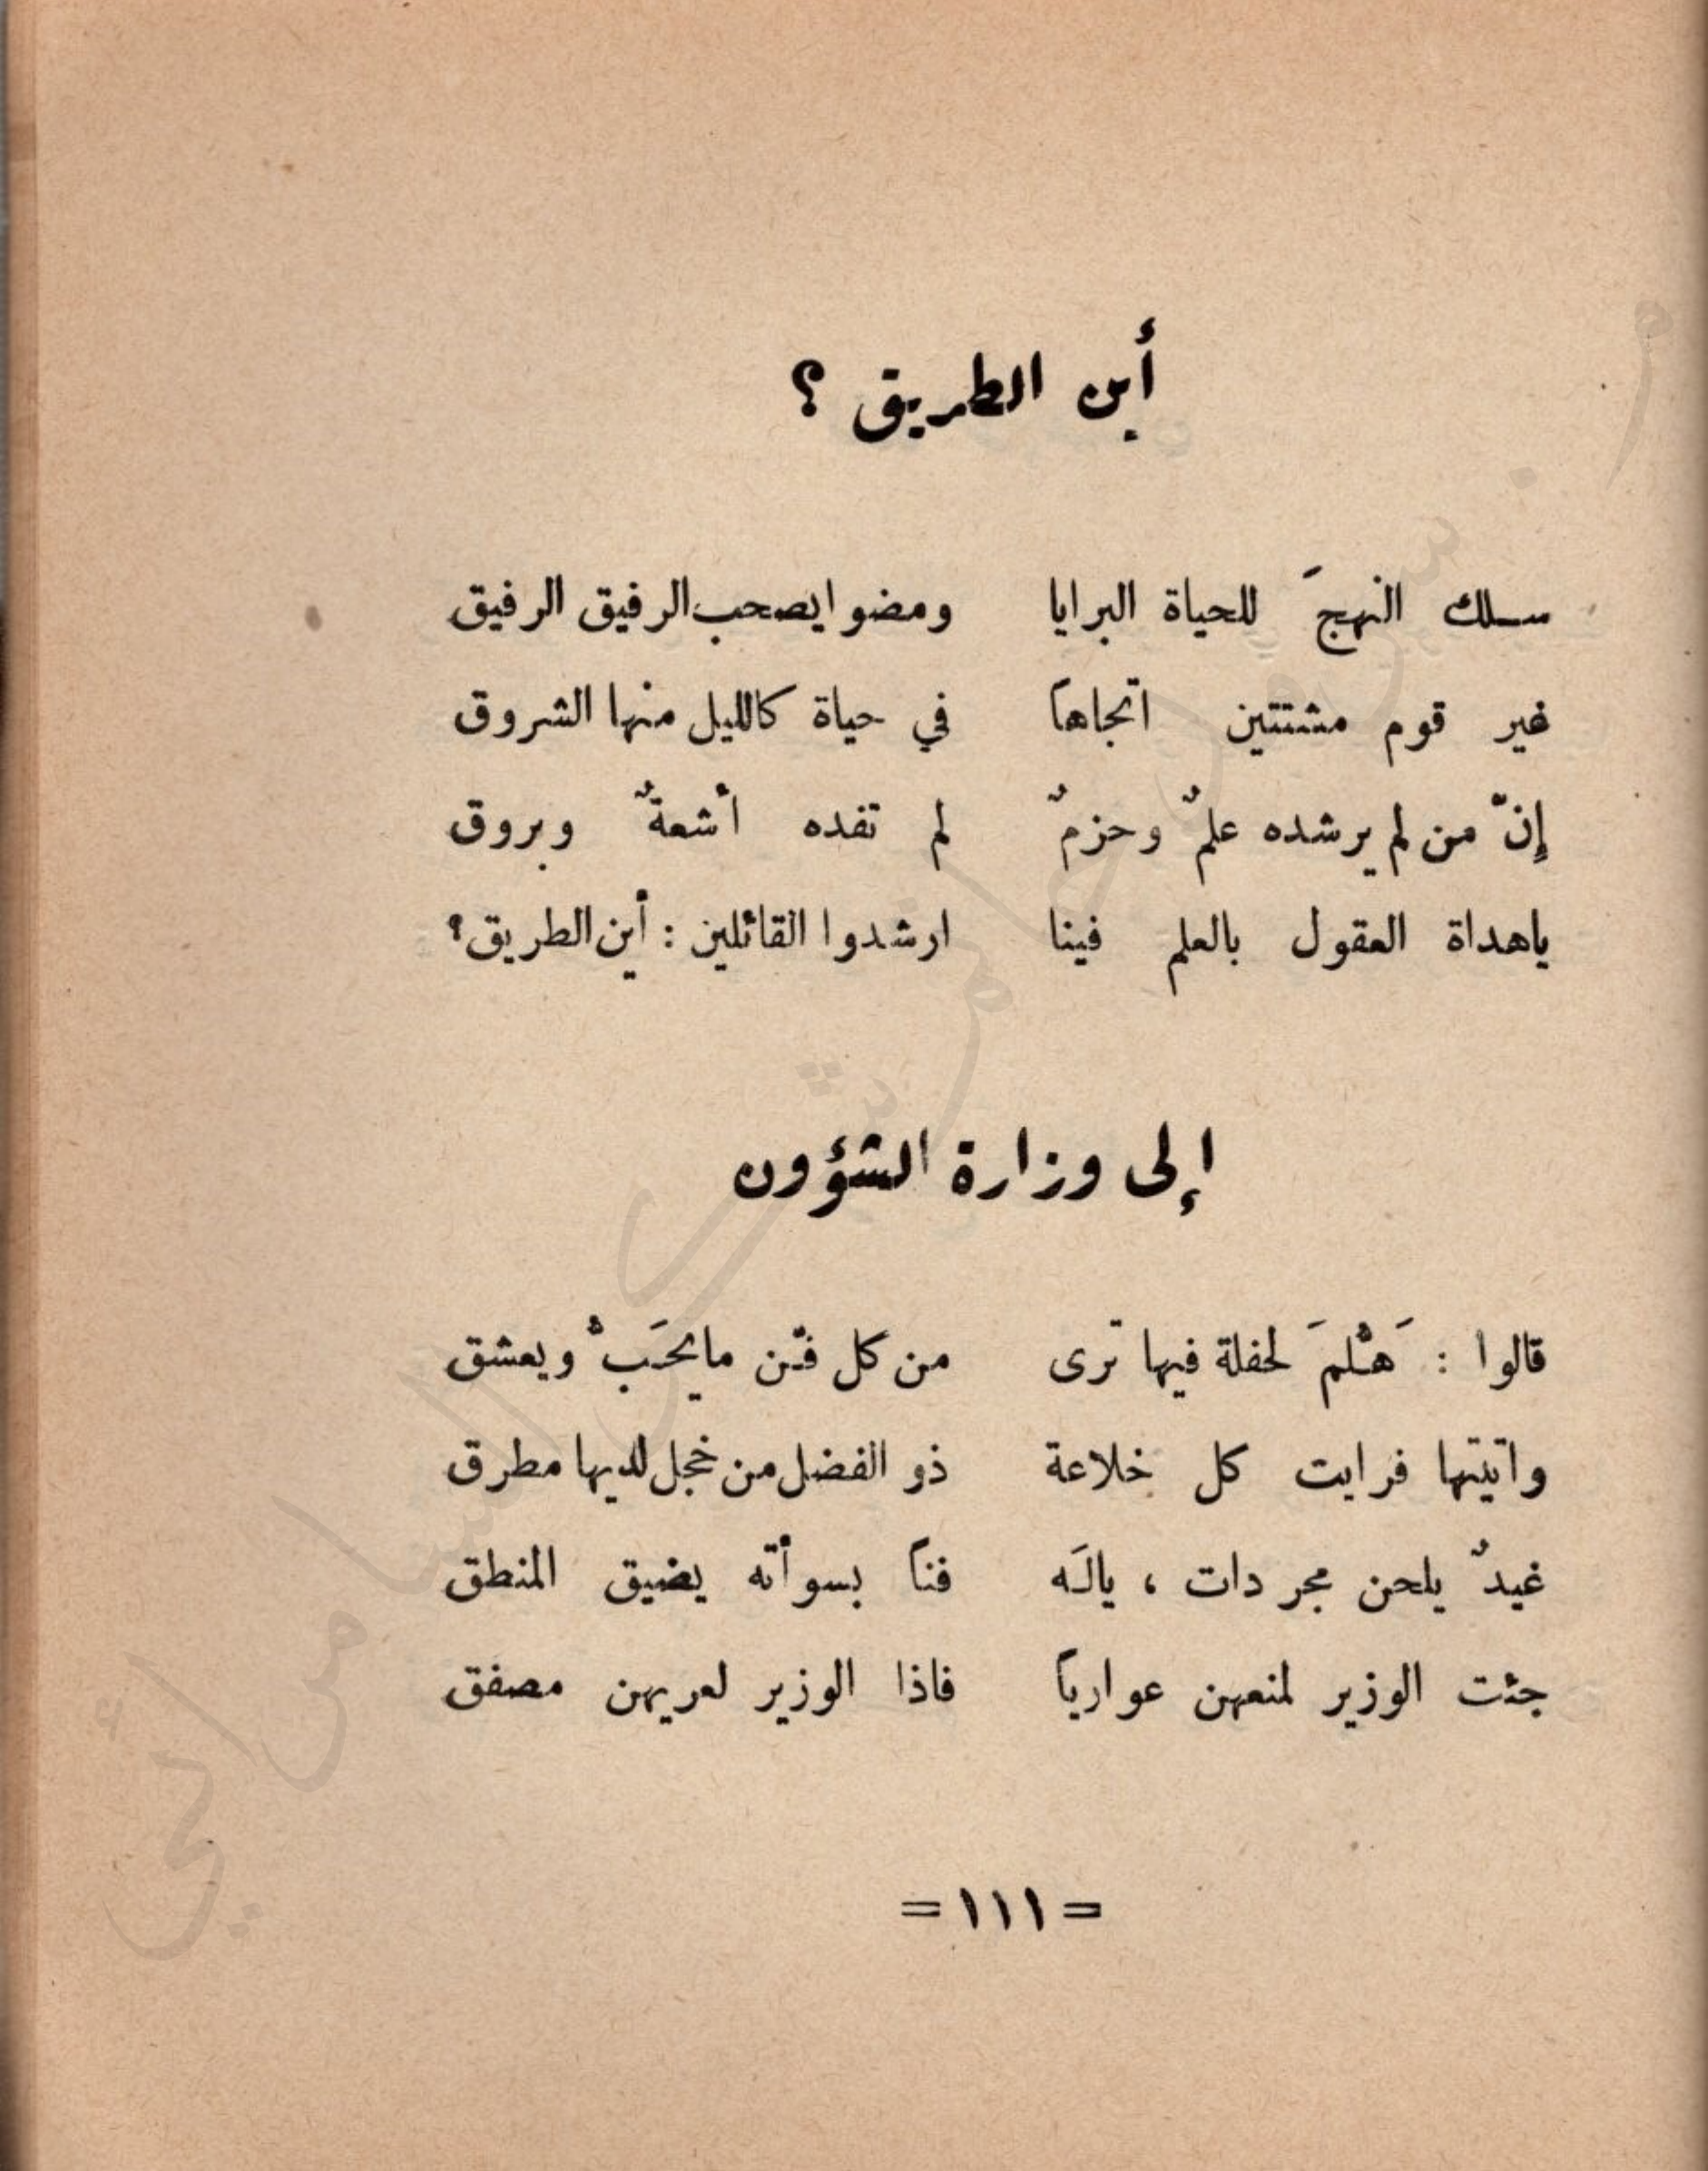 أين الطريق ؟
سلك النهجَ للحياة البرايا ومضوا يصحب الرفيق الرفيق
غير قوم مشتتين اتجاهاً في حياة كالليل منها الشروق
إنّ من لم يرشده علمٌ وحزمٌ لم تفده أشعةٌ وبروق
ياهداة العقول بالعلم فينا ارشدوا القائلين : أين الطريق؟
إلى وزارة الشؤون
قالوا : هَلُمَّ لحفلة فيها ترى من كل فنّ مايحَبُّ ويعشق
واتيتها فرايت كل خلاعة ذو الفضل من خجل لديها مطرق
غيدٌ يلحن مجردات ، يالَه فناً بسوأته يضيق المنطق
جئت الوزير لمنعهن عوارياً فاذا الوزير لعريهن مصفق
= ١١١ =